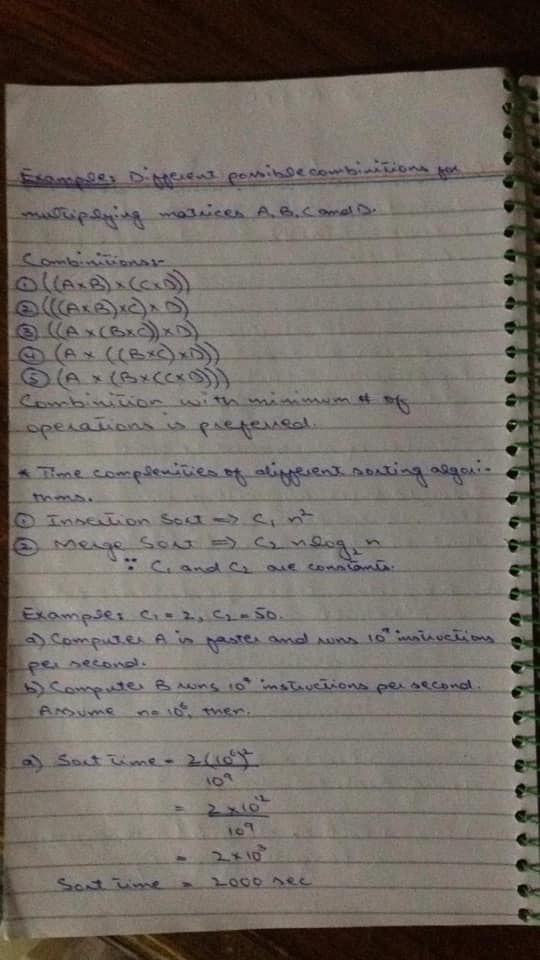 Example: Different possible combinitions for
multiplying matrices A, B, C and D.
Combinitions:-
① ((A×B)×(C×D))
② (((A×B)×C)×D)
③ ((A×(B×C))×D)
④ (A × ((B×C)×D))
⑤ (A × (B×(C×D)))
Combinition with minimum # of
operations is preferred.
* Time complexities of different sorting algori-
thms.
① Insertion Sort => C₁ n²
② Merge Sort => C₂ nlog₂ n
∵ C₁ and C₂ are constants.
Example: C₁ = 2, C₂ = 50.
a) Computer A is faster and runs 10⁹ instructions
per second.
b) Computer B runs instructions per second.
Assume n = 10⁶, then.
a) Sort time = 2(10⁶)²
10⁹
= 2 × 10¹²
10⁹
= 2 × 10³
Sort time = 2000 sec